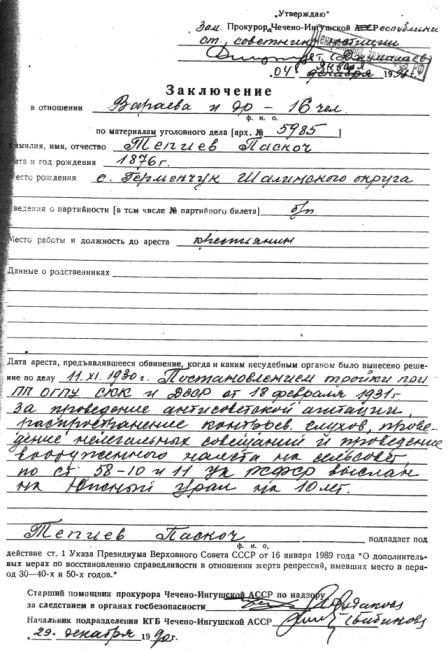 „Утверждаю"
Зам. Прокурор Чечено-Ингушской АССР еспублики
ст. советник юстиции
04 января
декабря 199
Заключение
в отношении Вараева и др - 16 чел.
ф. и. о.
по материалам уголовного дела [арх. № 5985]
амилия, имя, отчество Тепиев Паскоч
ата и год рождения 1876 г.
есто рождения с. Герменчук Шалинского округа
ведения о партийности [в том числе № партийного билета] б/п
есто работы и должность до ареста крестьянин
Данные о родственниках
Дата ареста, предъявлявшееся обвинение, когда и каким несудебным органом было вынесено реше-
ние по делу 11. XI. 1930 г. Постановлением тройки при
ПП ОГПУ СКК и ДССР от 18 февраля 1931 г.
за проведение антисоветской агитации,
распространение контррев. слухов, прове-
дение нелегальных совещаний и проведение
вооруженного налета на сельсовет
по ст 58-10 и 11 УК РСФСР выслан
на Южный Урал на 10 лет.
Тепиев Паскоч подпадает под
ф. и. о.
действие ст. 1 Указа Президиума Верховного Совета СССР от 16 января 1989 года "О дополнитель-
ных мерах по восстановлению справедливости в отношении жертв репрессий, имевших место в пери-
од 30—40-х и 50-х годов."
Старший помощник прокурора Чечено-Ингушской АССР по надзору
за следствием в органах госбезопасности
Начальник подразделения КГБ Чечено-Ингушской АССР
„29" декабря 1990 г.